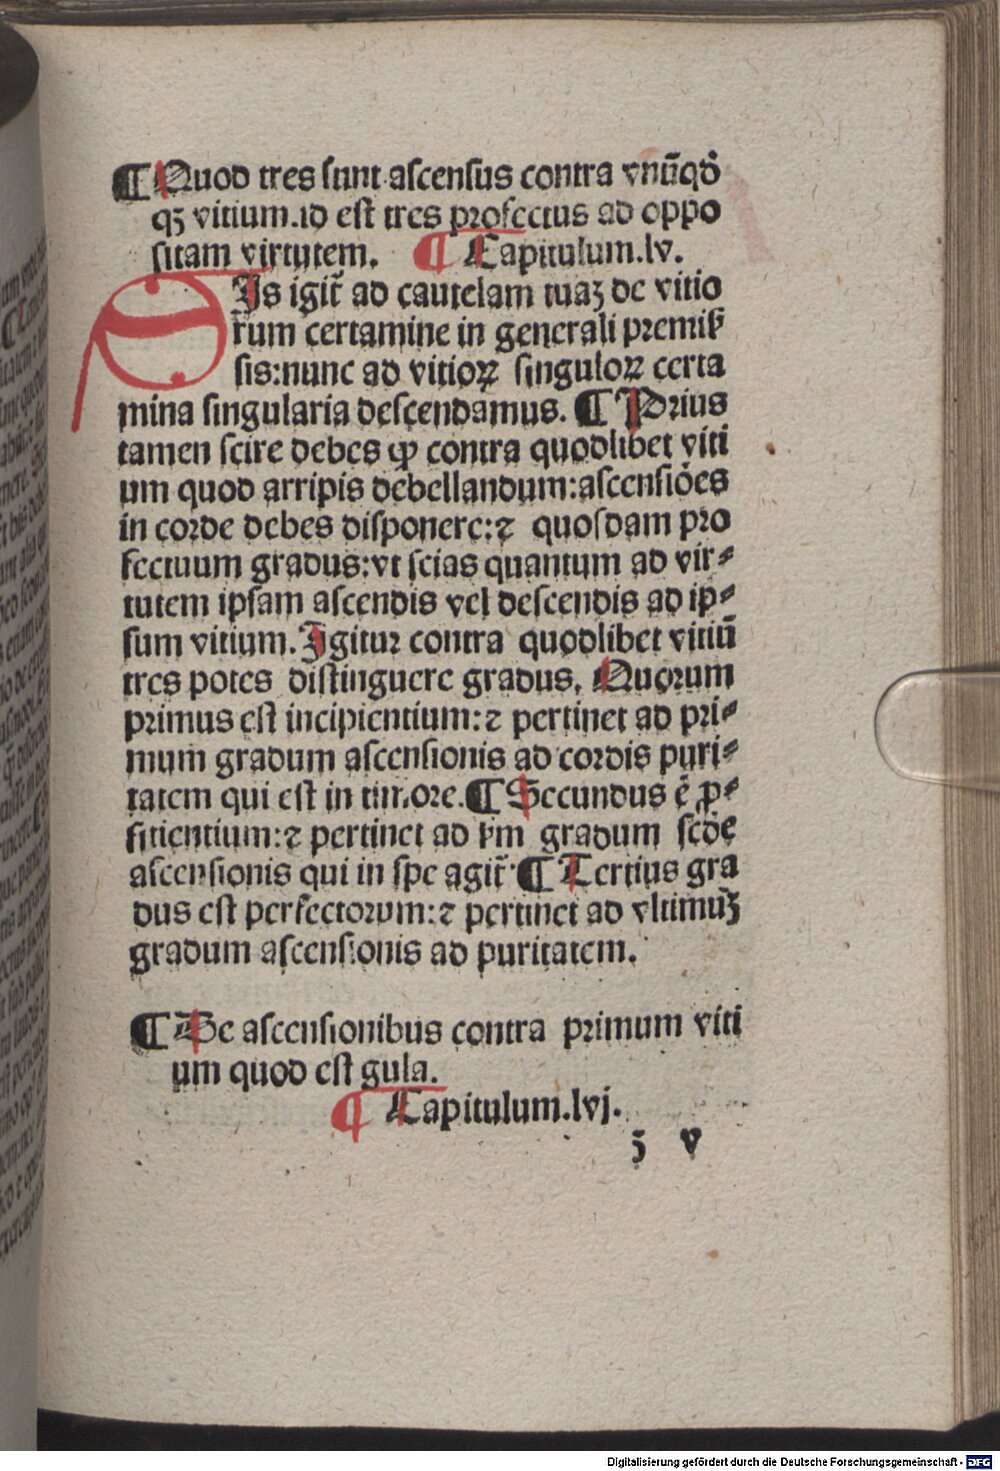 ¶ Quod tres sunt ascensus contra vnūqd́
qȝ vitium.id est tres profectus ad oppo
sitam virtutem. ¶ Capitulum.lv.
HIs igit̃ ad cautelam tuaȝ de vitio
rum certamine in generali premiſ
sis:nunc ad vitioꝝ singuloꝝ certa
mina singularia descendamus. ¶ Prius
tamen scire debes ꝙ contra quodlibet viti
um quod arripis debellandum:ascensiōes
in corde debes disponere:⁊ quosdam pro
fectuum gradus:vt scias quantum ad vir⸗
tutem ipsam ascendis vel descendis ad ip⸗
sum vitium.Igitur contra quodlibet vitiū
tres potes distinguere gradus. Quorum
primus est incipientium:⁊ pertinet ad pri⸗
mum gradum ascensionis ad cordis puri⸗
tatem qui est in timore.¶ Secundus ē ꝓ⸗
ficientium:⁊ pertinet ad ẜm gradum scd̄e
ascensionis qui in spe agit̃.¶ Tertius gra
dus est perfectorum:⁊ pertinet ad vltimuȝ
gradum ascensionis ad puritatem.
¶ De ascensionibus contra primum viti
um quod est gula.
¶ Capitulum.lvj.
ȝ v
Digitalisierung gefördert durch die Deutsche Forschungsgemeinschaft - DFG